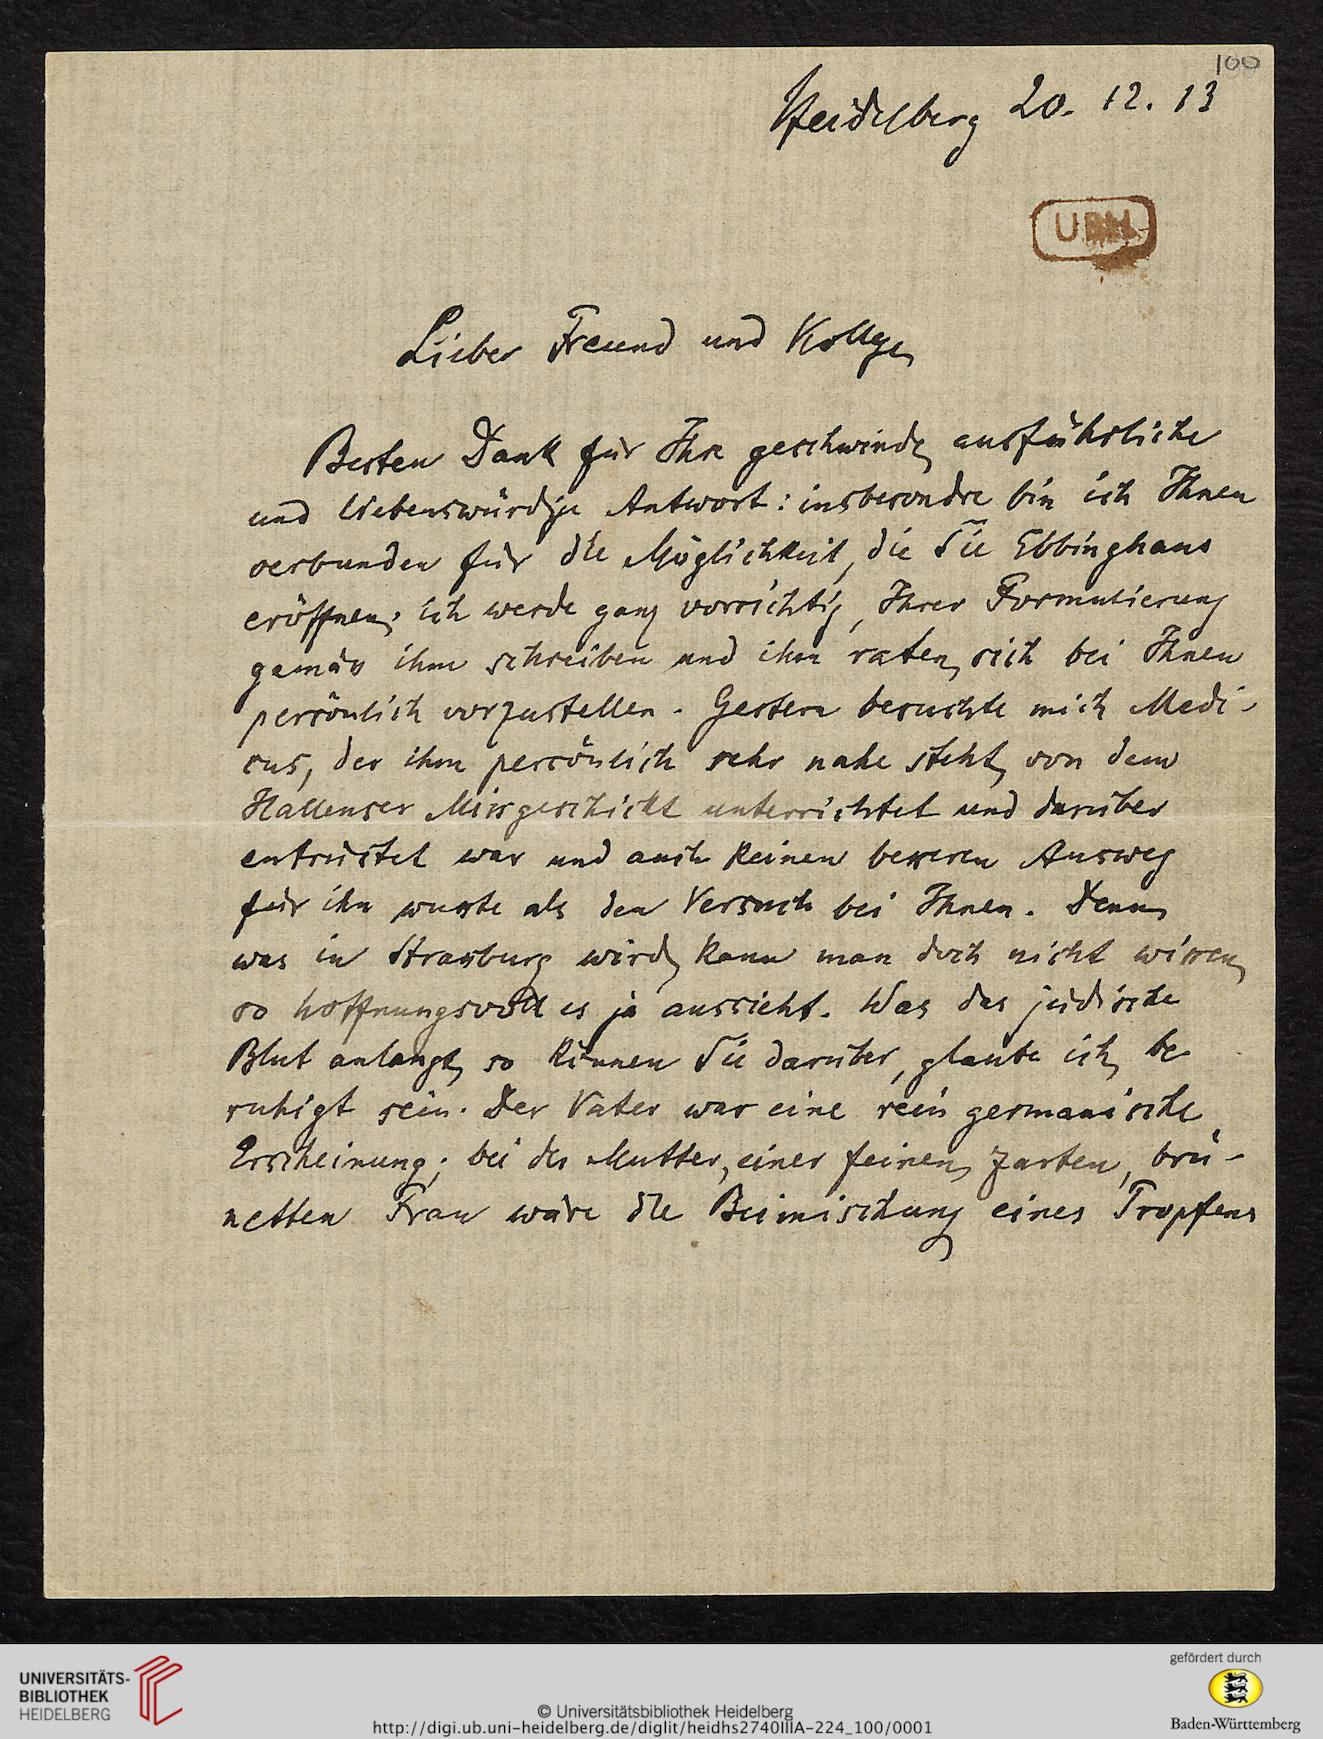 100
Heidelberg 20. 12. 13
UBH
Lieber Freund und Kollege,
Besten Dank für Ihre geschwinde, ausführliche
und liebenswürdige Antwort: insbesondre bin ich Ihnen
verbunden für die Möglichkeit, die Sie Ebbinghaus
eröffnen; ich werde ganz vorsichtig, Ihrer Formulierung
gemäss ihm schreiben und ihm raten, sich bei Ihnen
persönlich vorzustellen. Gestern besuchte mich Medi-
cus, der ihm persönlich sehr nahe steht, von dem
Hallenser Missgeschickt unterrichtet und darüber
entrüstet war und auch keinen besseren Ausweg
für ihn wusste als den Versuch bei Ihnen. Denn
was in Strassburg wird, kann man doch nicht wissen,
so hoffnungsvoll es ja aussieht. Was das jüdische
Blut anlangt, so können Sie darüber, glaube ich, be
ruhigt sein. Der Vater war eine rein germanische
Erscheinung; bei der Mutter, einer feinen, zarten, brü-
netten Frau wäre die Beimischung eines Tropfens
UNIVERSITÄTS-
BIBLIOTHEK
HEIDELBERG
© Universitätsbibliothek Heidelberg
http://digi.ub.uni-heidelberg.de/diglit/heidhs2740IIIA-224_100/0001
gefördert durch
Baden-Württemberg